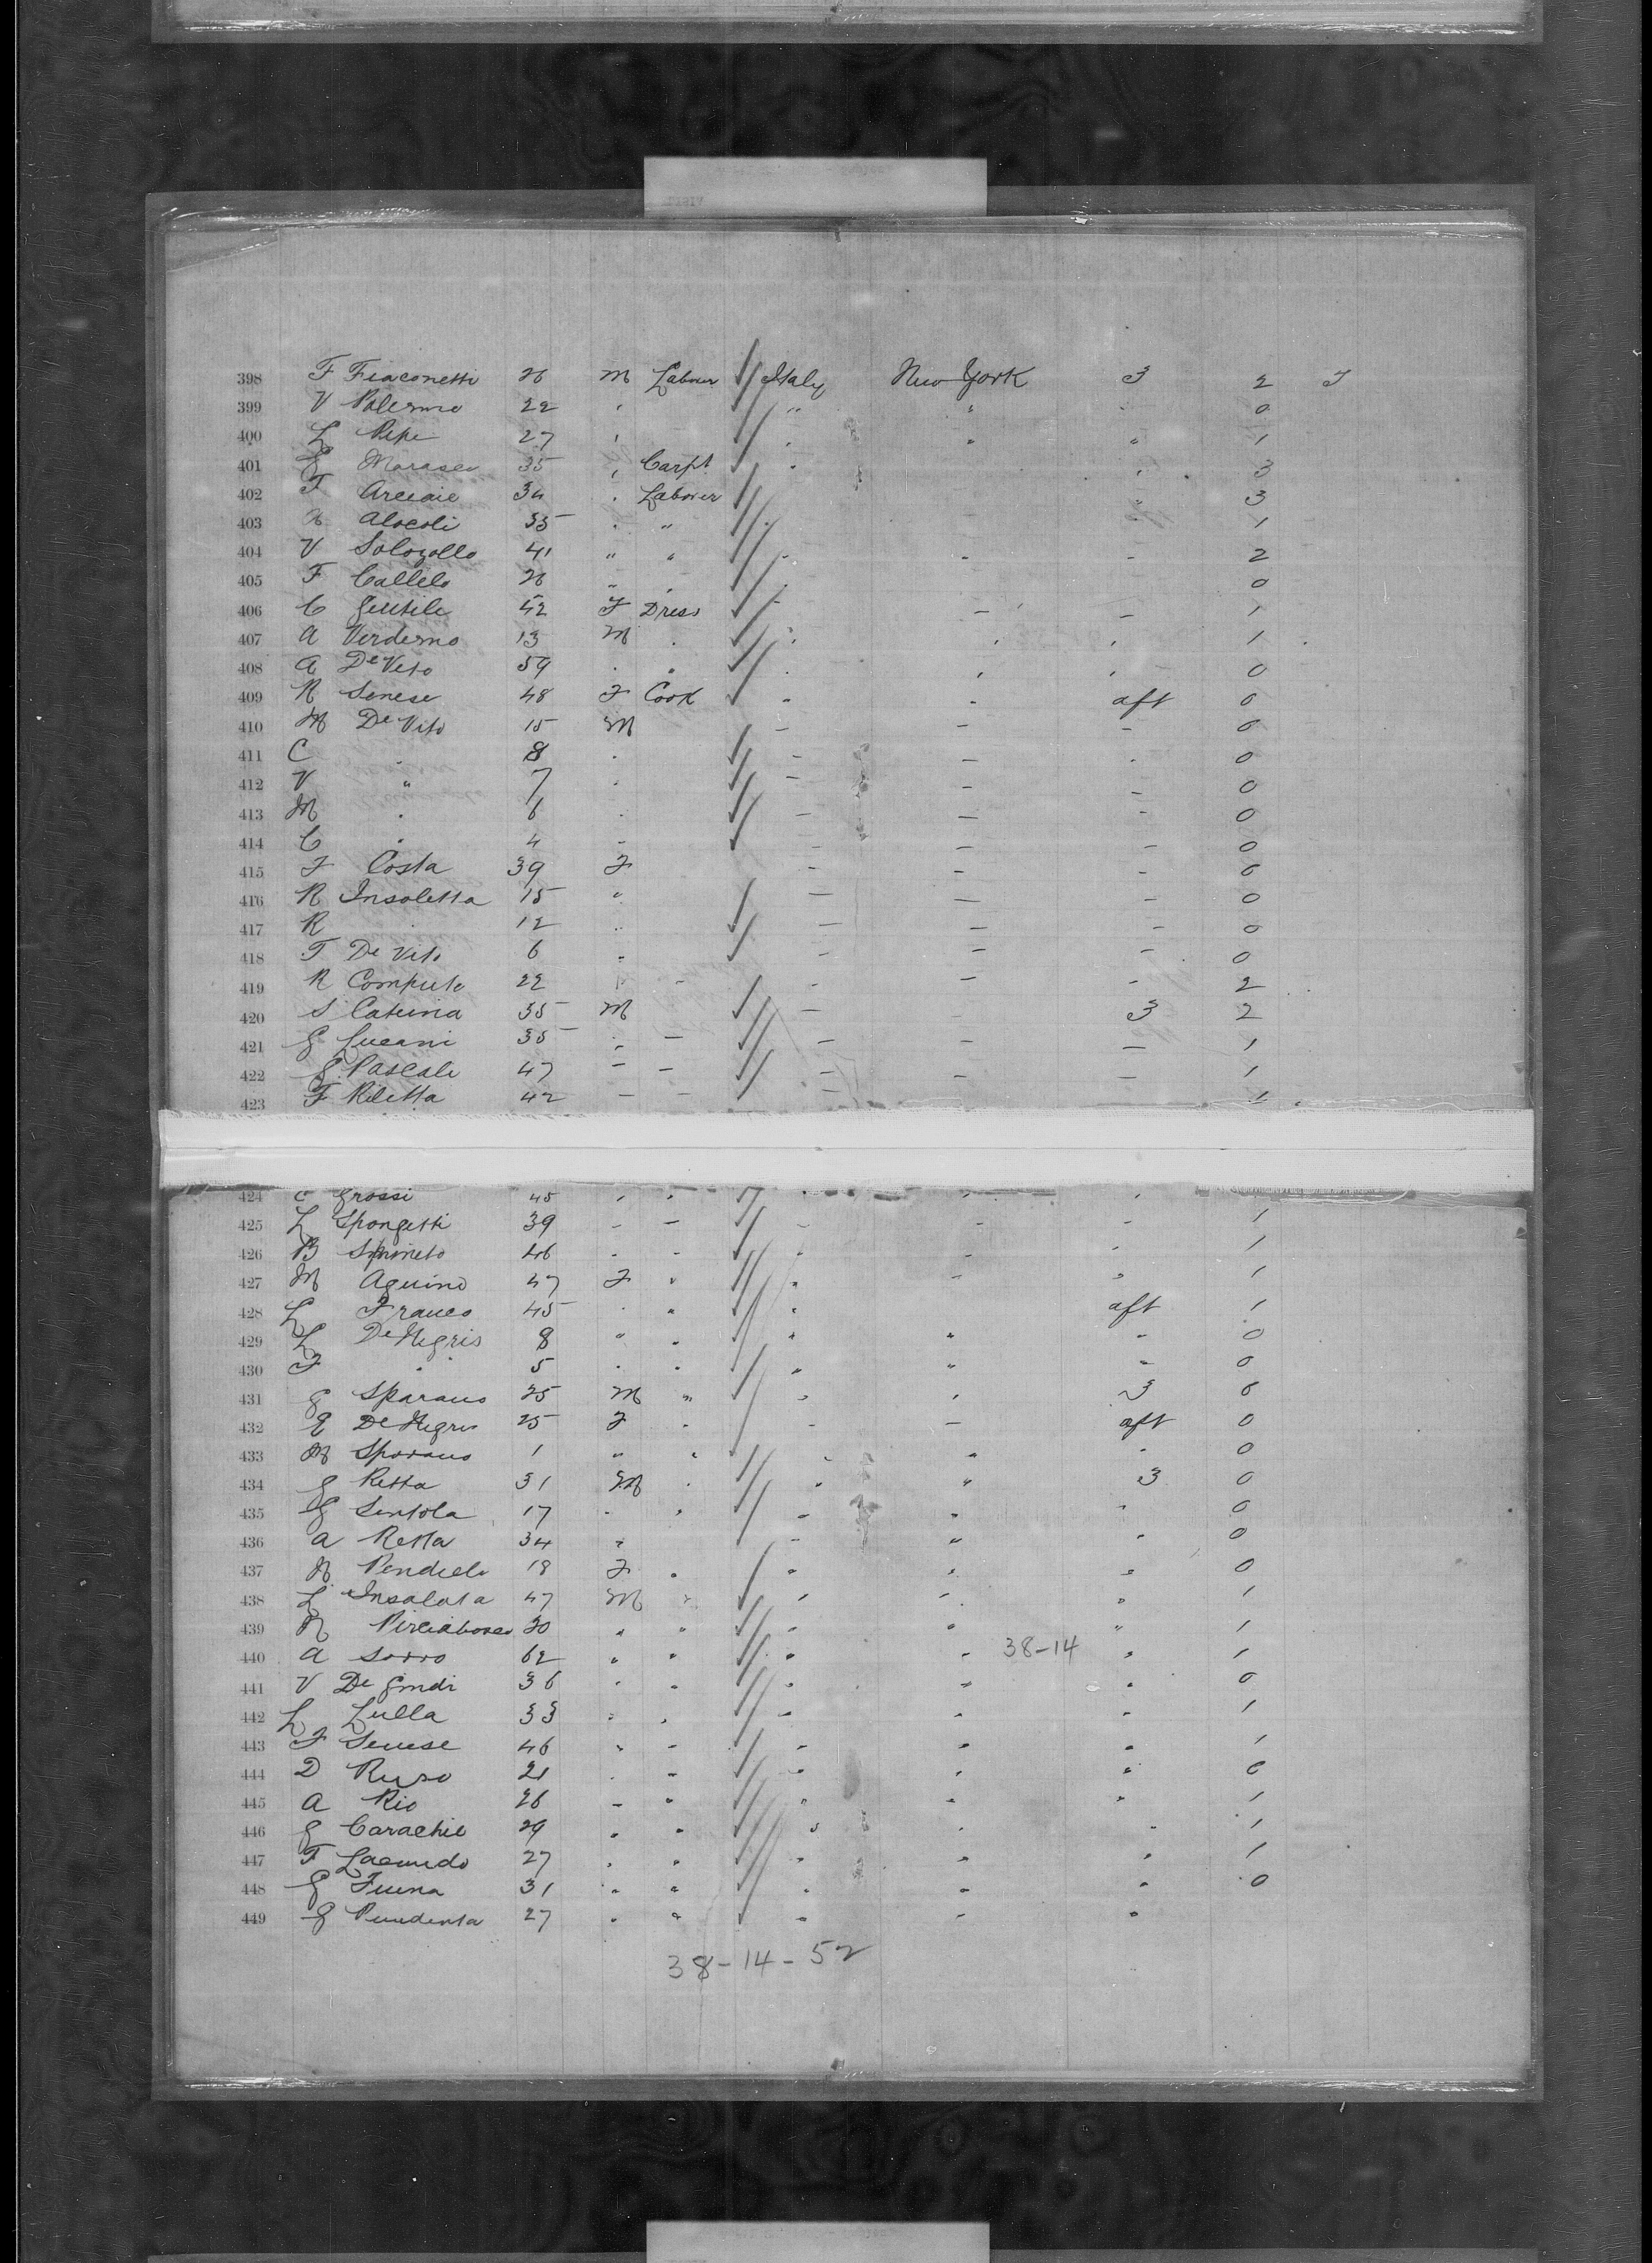 398 F Fiaconetti 26 M Laborer Italy New York 3 2 J
399 V Palermo 22 " " " " 0
400 L Pepe 27 " " " " 1
401 G Marasco 35 " Carpt " " 3
402 F 34 " Laborer " 3
403 Alocoli 35 " " " " 1
404 V Solozollo 41 " " " - - 2
405 F Callelo 26 " " " 0
406 C Gentile 42 F Dress - - - 1
407 A Verdemo 13 M " " " " 1
408 A De Vito 59 " " " " " 0
409 R Senese 48 F Cook " " aft 0
410 M De Vito 15 M - - - 0
411 C " 8 " - - - 0
412 V " 7 " - - - 0
413 M " 6 " - - - 0
414 C " 4 " - - - 0
415 F Costa 39 F - - - 0
416 R Insoletta 15 " - - - 0
417 R " 12 " - - - 0
418 F De Vito 6 " - - - 0
419 R Computo 22 " - - - - 2
420 S Caterina 35 M - - 3 2
421 G Lucani 35 " - - - - 1
422 G Pascale 47 - - - - - 1
423 F Riletta 42 - - 1
424 C Grossi 45 " " " " "
425 L Spongetti 39 - - - - - 1
426 B Spineto 46 - - " - " 1
427 M Aquino 47 F " " - " 1
428 L Franco 45 " " " aft 1
429 L De Negris 8 " " " " " 0
430 F " 5 " " " " " 0
431 G Sparano 25 M " " " 3 0
432 G De Negris 25 F " - - aft 0
433 M Sporano 1 " " " " " 0
434 G Retta 31 M " " " 3 0
435 G Sentola 17 " " " " " 0
436 A Retta 34 " - " " 0
437 Pendielo 18 F " " " " 0
438 L Insalata 47 M " " " " 1
439 30 " " " " " 1
440 A Sorro 62 " " " " 38-14 " 1
441 V De 36 " " " " " 0
442 L Lulla 33 " " " " " 1
443 F Senese 46 " " " " " 1
444 D Ruso 21 " " " " " 0
445 A Rio 26 " " " " " 1
446 G Carachie 29 " " " " " 1
447 F Lacundo 27 " " " " " 1
448 G Fuina 31 " " " " " 0
449 G 27 " " " " "
38-14-52